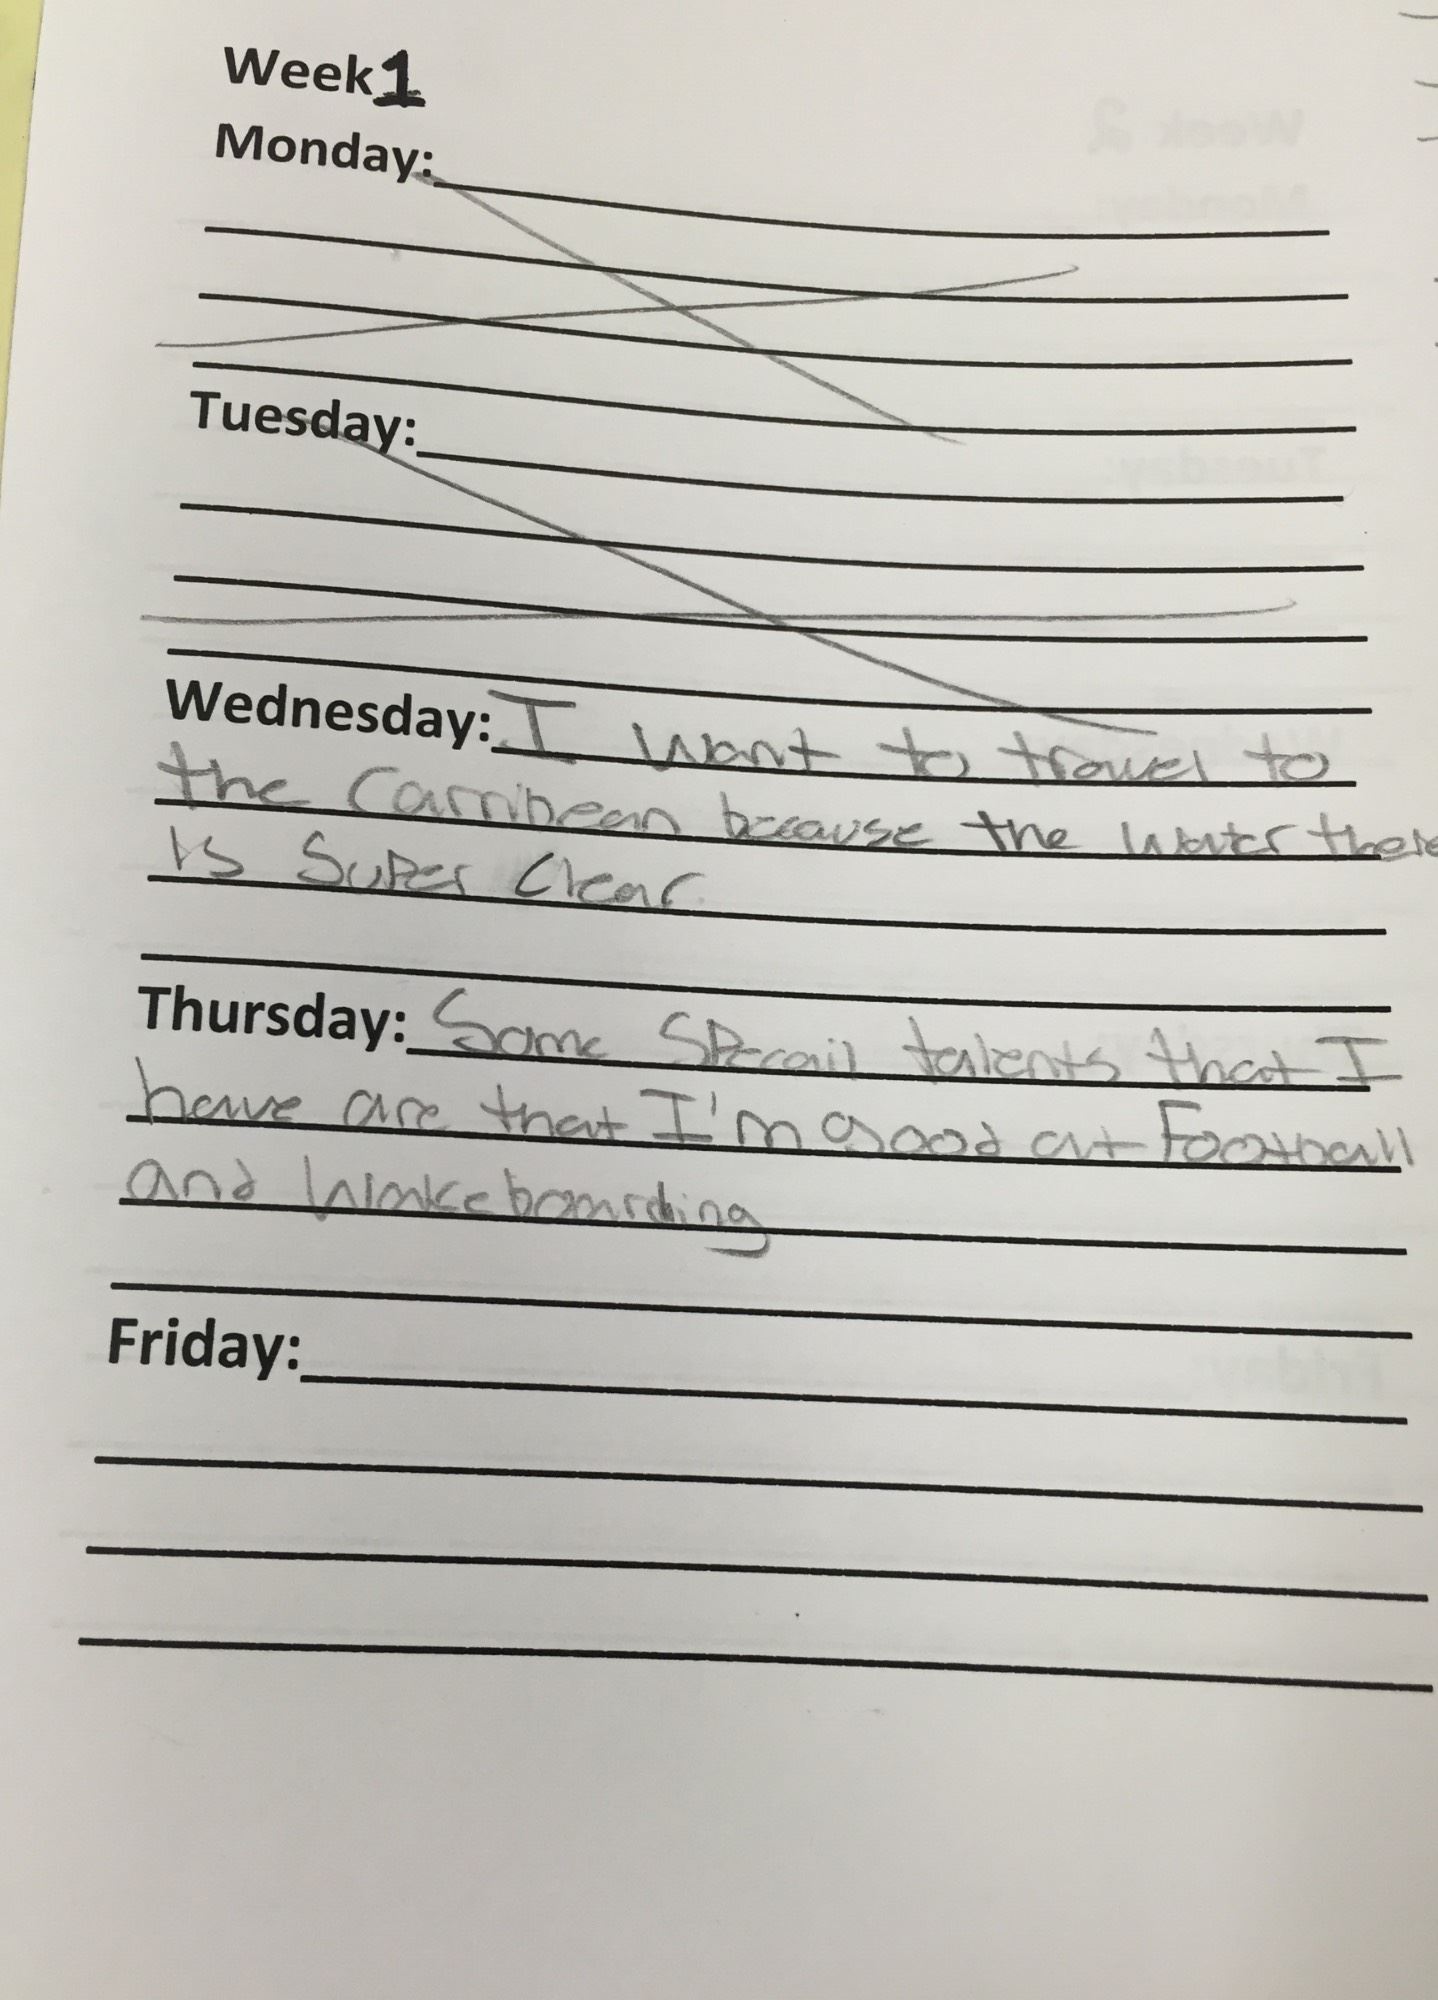 Week 1
Monday:
Tuesday:
Wednesday: I want to travel to
the Carribean because the water there
is super clear.
Thursday: Some Specail talents that I
have are that I'm good at Football
and Wakeboarding
Friday: